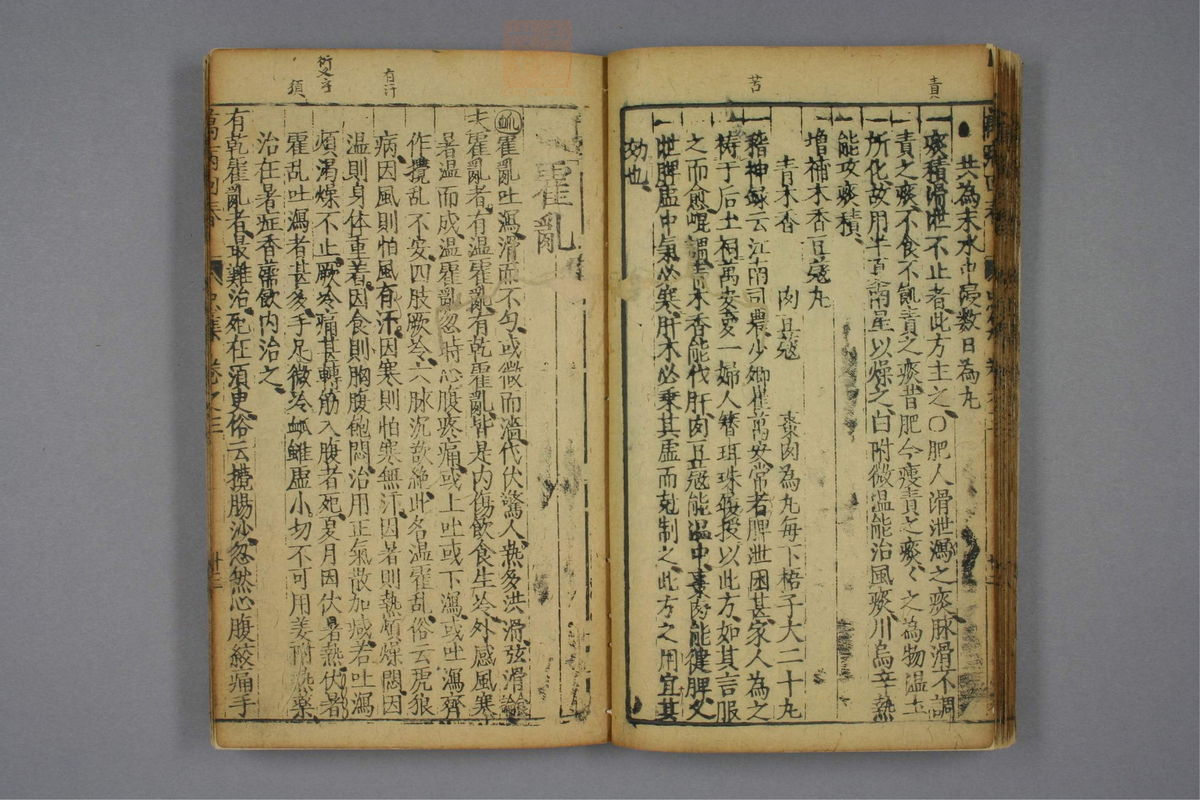 責
苦
共為末水巾浸數日為丸
一痰積滑泄不止者此方主之〇肥人滑泄瀉之痰脉滑不調
責之痰不食不飢責之痰昔肥今瘦責之痰〻之為物湿土
所化故用半夏南星以燥之白附微温能治風痰川烏辛熱
能攻痰積
增補木香豆蔻丸
青木香　肉豆蔻　棗肉為丸每下梧子大二十丸
稽神録云江南司農少卿崔萬安常者脾泄困甚家人為之
禱于后土祠萬安夢一婦人簪珥珠履授以此方如其言服
之而愈崐謂青木香能代肝肉豆蔻能温中棗肉能健脾久
泄脾虛中氣必寒肝木必乗其虚而尅制之此方之用宜其
効也
有汗
衍文字
須
霍亂
脉霍亂吐瀉滑而不匀或微而濇代伏驚人热多洪滑弦滑論
夫霍亂者有温霍亂有乾霍亂皆是内傷飲食生冷外感風寒
暑温而成温霍亂忽時心腹疼痛或上吐或下瀉或吐瀉齊
作攪乱不安四肢厥冷六脉沉欲絶此名温霍乱俗云虎狼
病因風則怕風有汗因寒則怕寒無汗因暑則熱煩燥悶因
温則身体重着因食則胸腹飽悶治用正氣散加减若吐瀉
煩渇燥不止厥冷痛甚轉筋入腹者死夏月因伏暑熱伏者
霍乱吐瀉者甚多手足微冷脉雖虚小切不可用姜附热藥
治在暑症香薷飲内治之
有乾霍亂者最難治死在須臾俗云攪腸沙忽然心腹絞痛手
萬病回春
卷之三